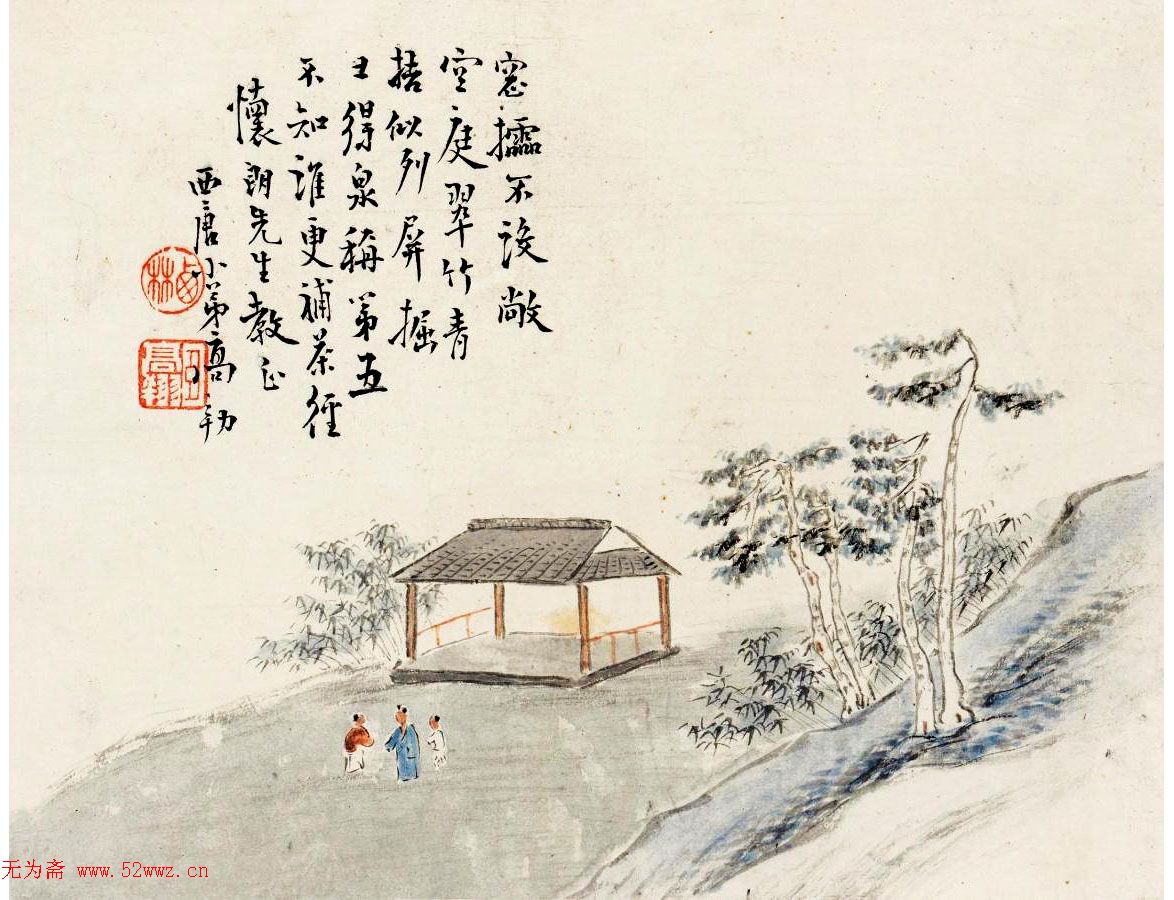 窓櫺不設敞
空庭翠竹青
梧似列屏掘
土得泉稱第五
不知誰更補茶徑
懷朗先生教正
西唐小弟高翔
无为斋 www.52wwz.cn